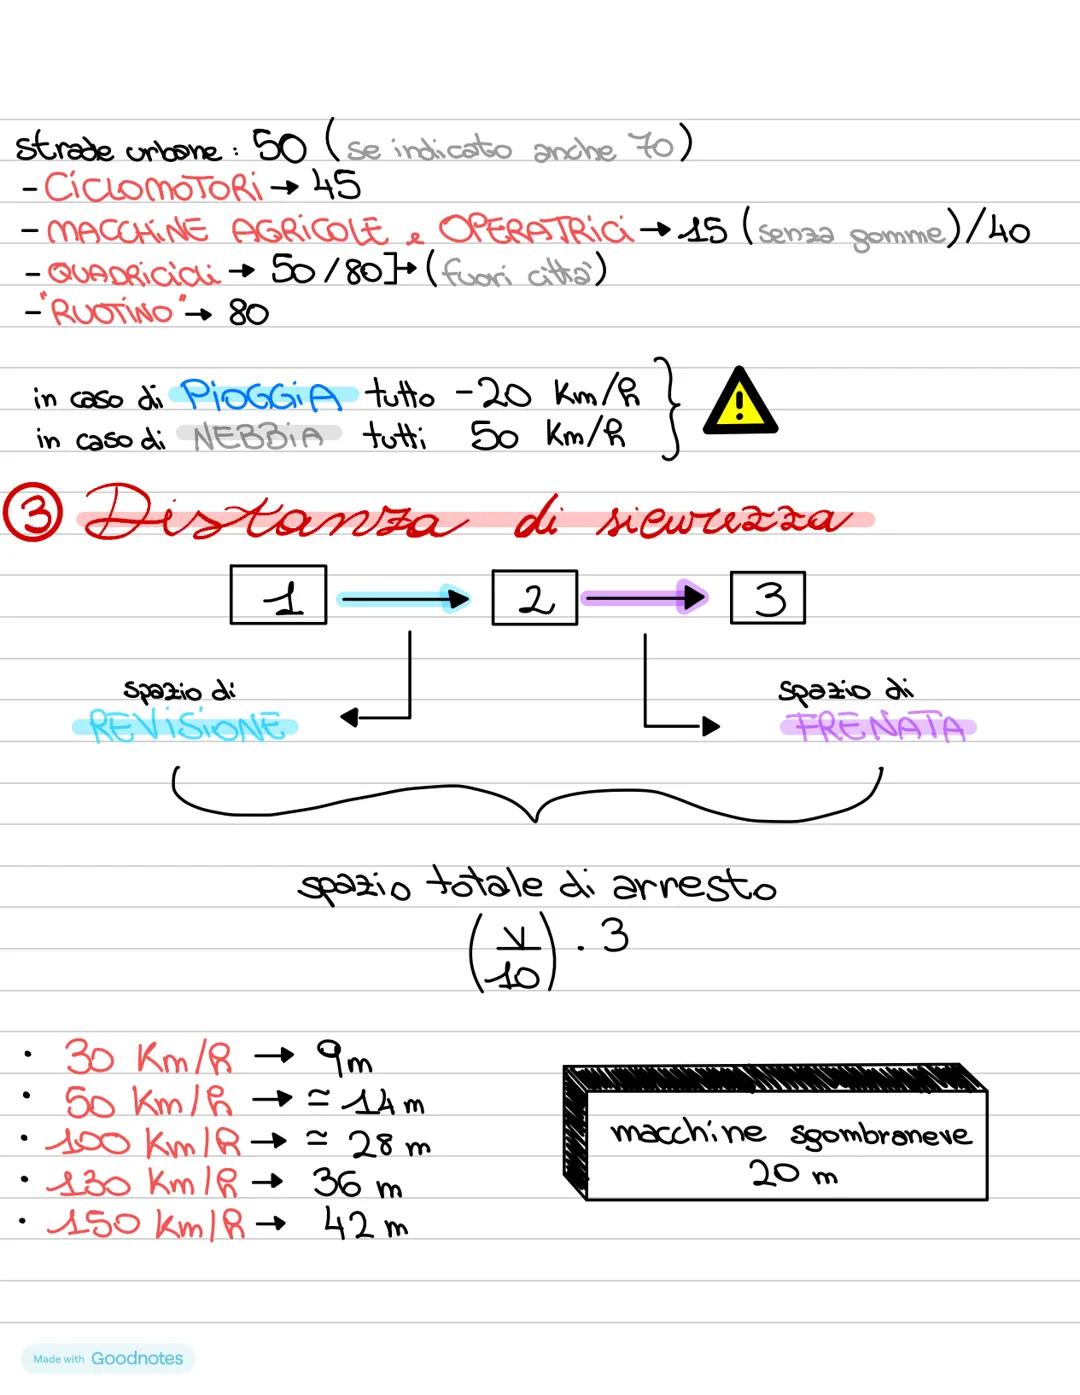 strade urbane : 50 (se indicato anche 70)
- CICLOMOTORI → 45
- MACCHINE AGRICOLE e OPERATRICI → 15 (senza gomme)/40
- QUADRICICLI → 50/80]→ (fuori città)
- "RUOTINO" → 80
in caso di PIOGGIA tutto -20 Km/h
in caso di NEBBIA tutti 50 Km/h
!
③ Distanza di sicurezza
1 → 2 → 3
spazio di
REVISIONE
spazio di
FRENATA
spazio totale di arresto
(V/10) . 3
• 30 Km/h → 9m
• 50 Km/h → ≃ 14 m
• 100 Km/h → ≃ 28 m
• 130 Km/h → 36 m
• 150 Km/h → 42 m
macchine sgombraneve
20 m
Made with Goodnotes